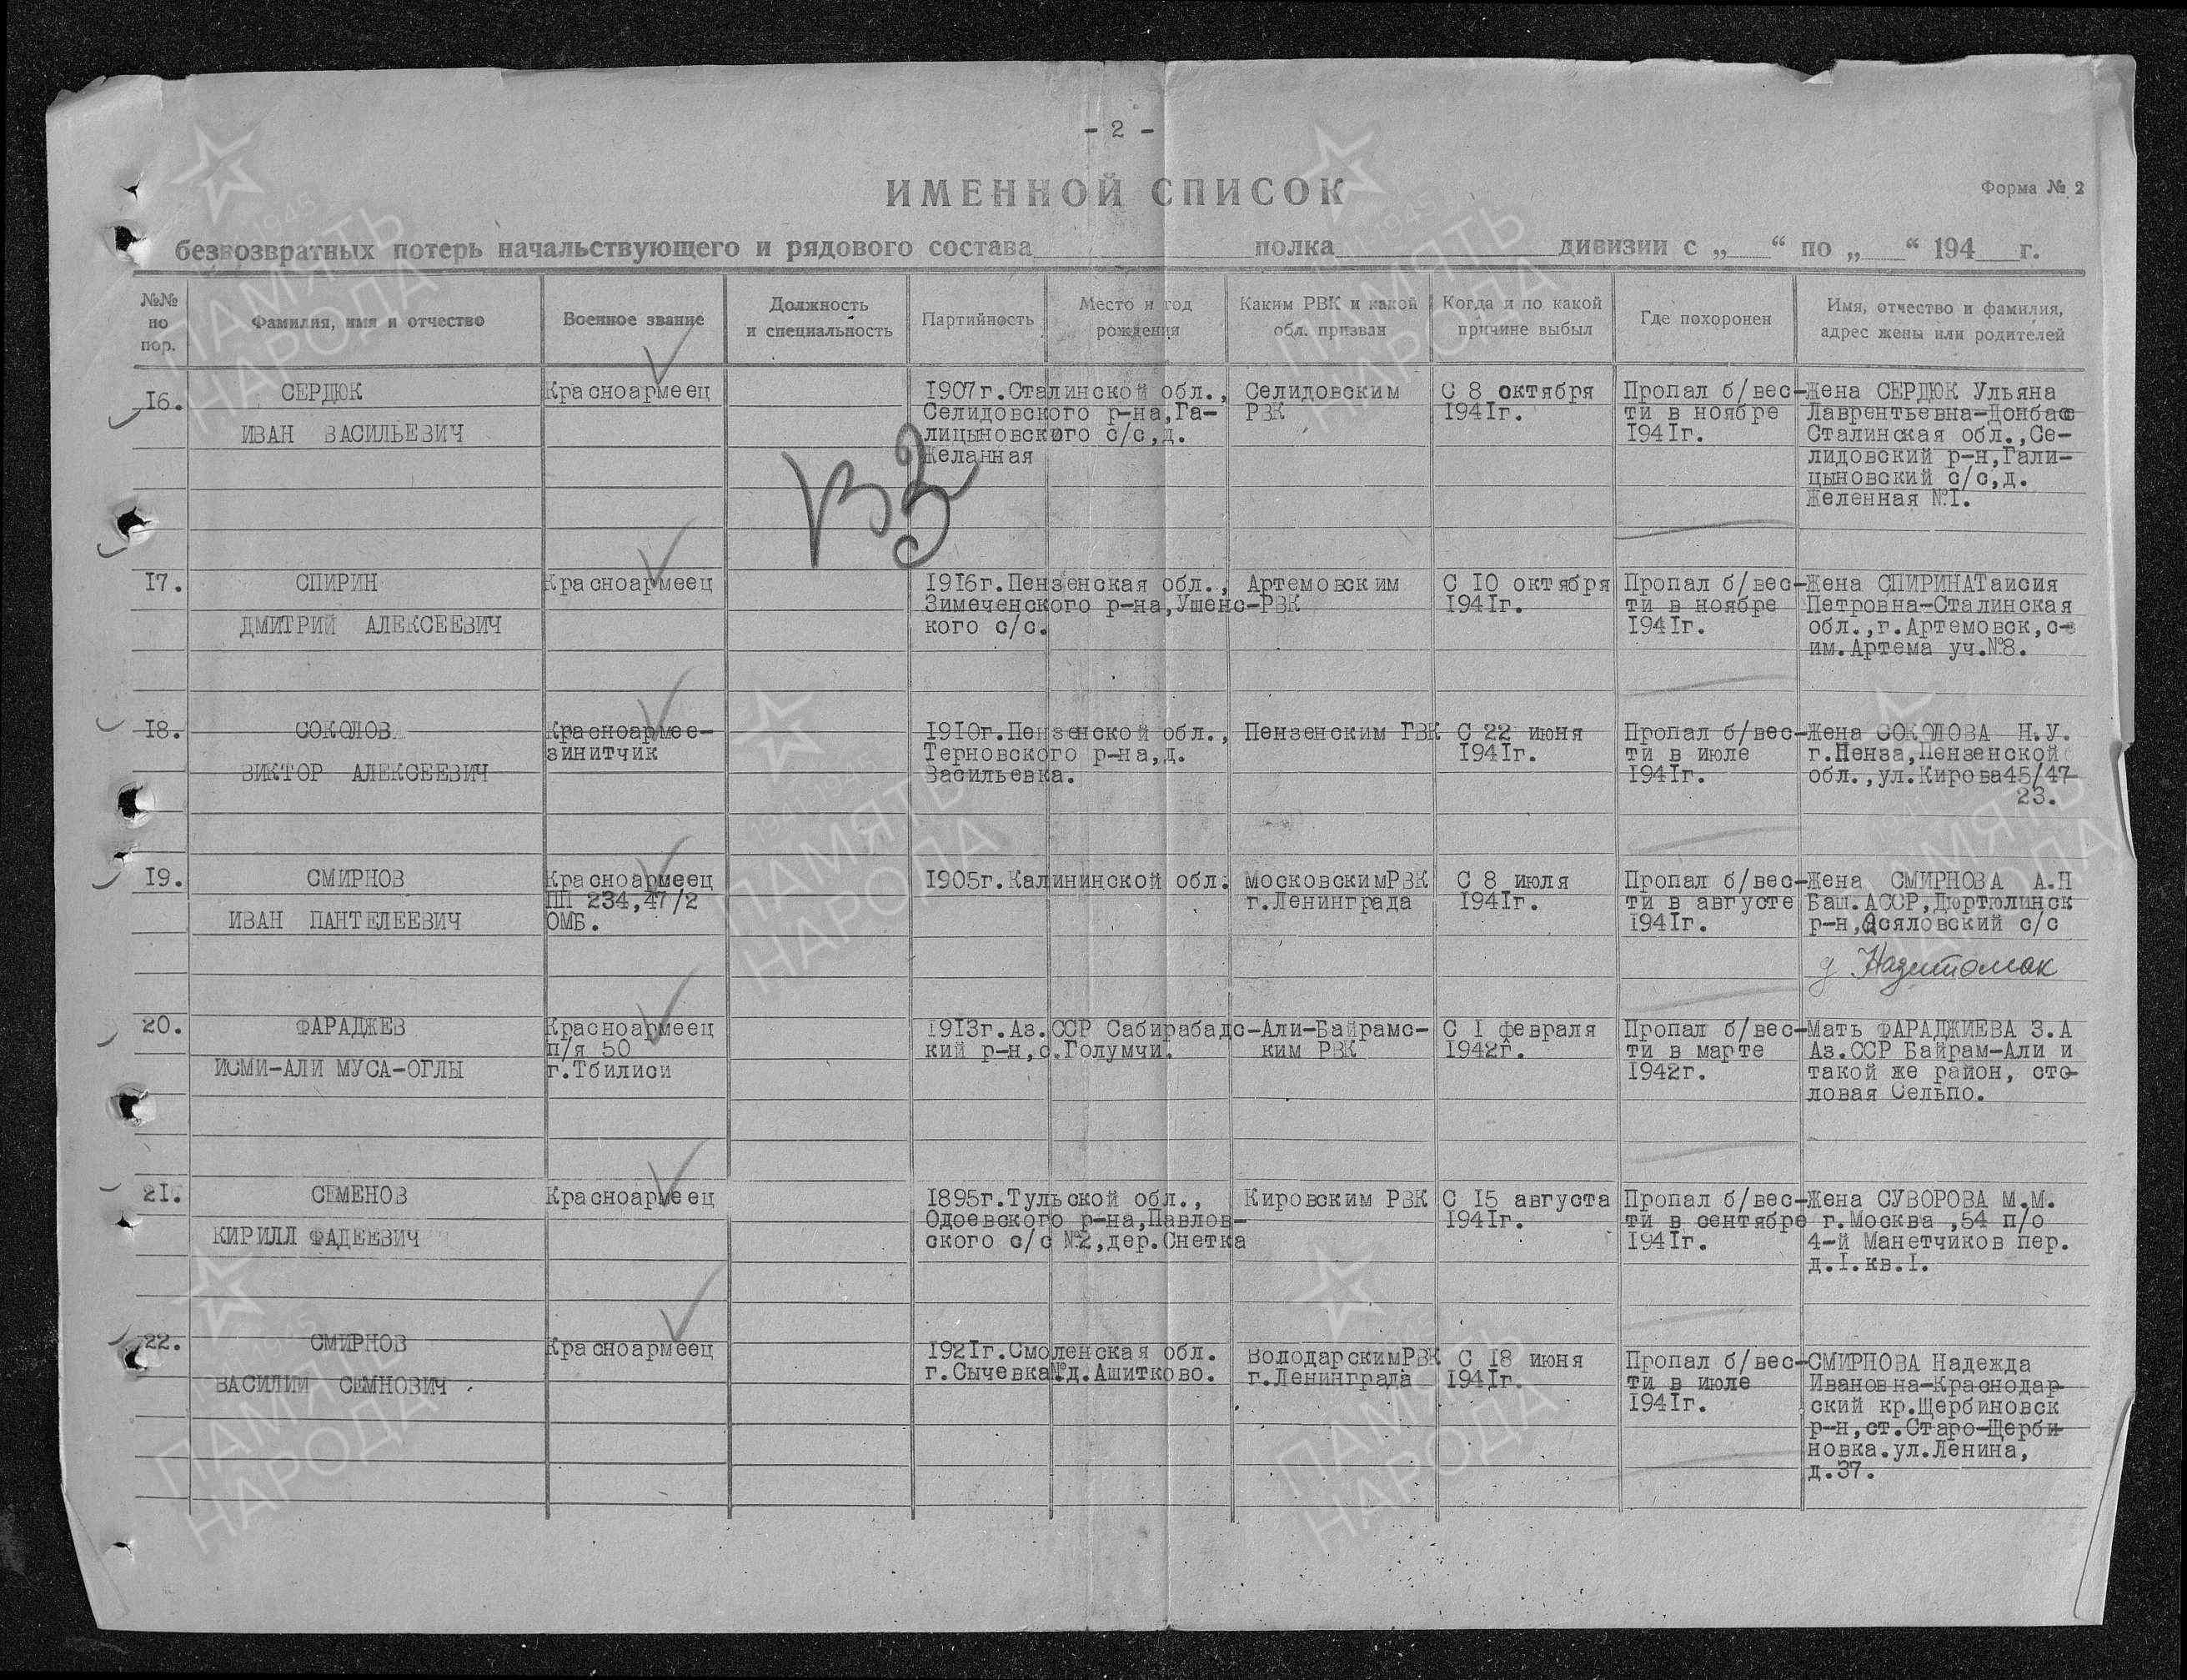 - 2 -
ИМЕННОЙ СПИСОК
Форма № 2
безвозвратных потерь начальствующего и рядового состава полка дивизии с „ “ по „ “ 194 г.
№№ по пор.
Фамилия, имя и отчество
Военное звание
Должность и специальность
Партийность
Место и год рождения
Каким РВК и какой обл. призван
Когда и по какой причине выбыл
Где похоронен
Имя, отчество и фамилия, адрес жены или родителей
16.
СЕРДЮК
ИВАН ВАСИЛЬЕВИЧ
Красноармеец
1907г.Сталинской обл.,
Селидовского р-на,Га-
лицыновского с/с,д.
Желанная
Селидовским
РВК
С 8 октября
1941г.
Пропал б/вес-
ти в ноябре
1941г.
Жена СЕРДЮК Ульяна
Лаврентьевна-Донбасс
Сталинская обл.,Се-
лидовский р-н,Гали-
цыновский с/с,д.
Желенная №1.
17.
СПИРИН
ДМИТРИЙ АЛЕКСЕЕВИЧ
Красноармеец
1916г.Пензенская обл.,
Зимеченского р-на,Ушенс-
кого с/с.
Артемовским
РВК
С 10 октября
1941г.
Пропал б/вес-
ти в ноябре
1941г.
Жена СПИРИНАТаисия
Петровна-Сталинская
обл.,г.Артемовск,с-
им.Артема уч.№8.
18.
СОКОЛОВ
ВИКТОР АЛЕКСЕЕВИЧ
Красноармее-
зинитчик
1910г.Пензенской обл.,
Терновского р-на,д.
Васильевка.
Пензенским ГВК
С 22 июня
1941г.
Пропал б/вес-
ти в июле
1941г.
Жена СОКОЛОВА Н.У.
г.Пенза,Пензенской
обл.,ул.Кирова45/47
23.
19.
СМИРНОВ
ИВАН ПАНТЕЛЕЕВИЧ
Красноармеец
ПП 234,47/2
ОМБ.
1905г.Калининской обл.
МосковскимРВК
г.Ленинграда
С 8 июля
1941г.
Пропал б/вес-
ти в августе
1941г.
Жена СМИРНОВА А.Н
Баш.АССР,Дюртюлинск
р-н,Асяловский с/с
д Назитомак
20.
ФАРАДЖЕВ
ИСМИ-АЛИ МУСА-ОГЛЫ
Красноармеец
п/я 50
г.Тбилиси
1913г.Аз.ССР Сабирабадс-
кий р-н,с.Голумчи.
Али-Байрамс-
ким РВК
С 1 февраля
1942г.
Пропал б/вес-
ти в марте
1942г.
Мать ФАРАДЖИЕВА З.А
Аз.ССР Байрам-Али и
такой же район, сто-
ловая Сельпо.
21.
СЕМЕНОВ
КИРИЛЛ ФАДЕЕВИЧ
Красноармеец
1895г.Тульской обл.,
Одоевского р-на,Павлов-
ского с/с №2,дер.Снетка
Кировским РВК
С 15 августа
1941г.
Пропал б/вес-
ти в сентябре
1941г.
Жена СУВОРОВА М.М.
г.Москва ,54 п/о
4-й Манетчиков пер.
д.1.кв.1.
22.
СМИРНОВ
ВАСИЛИЙ СЕМНОВИЧ
Красноармеец
1921г.Смоленская обл.
г.Сычевка№д.Ашитково.
ВолодарскимРВК
г.Ленинграда
С 18 июня
1941г.
Пропал б/вес-
ти в июле
1941г.
СМИРНОВА Надежда
Ивановна-Краснодар
ский кр.Щербиновск
р-н,ст.Старо-Щерби-
новка.ул.Ленина,
д.37.
ПАМЯТЬ
НАРОДА
1941-1945